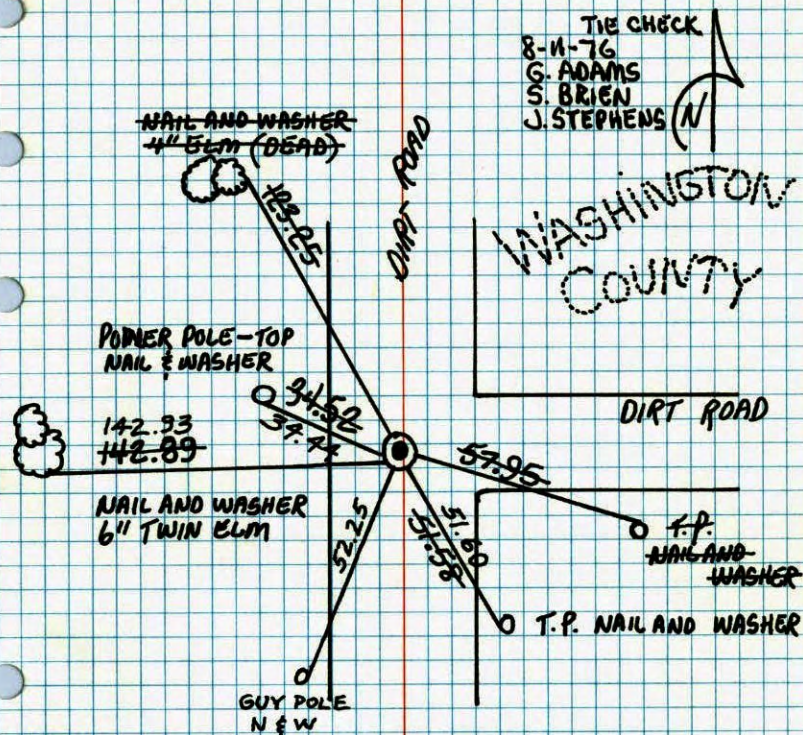 TIE CHECK
8-11-76
G. ADAMS
S. BRIEN
J. STEPHENS
N
NAIL AND WASHER
4" ELM (DEAD)
123.25
DIRT ROAD
WASHINGTON
COUNTY
POWER POLE-TOP
NAIL & WASHER
34.52
34.44
DIRT ROAD
142.93
142.89
57.95
NAIL AND WASHER
6" TWIN ELM
52.25
51.60
51.58
T.P.
NAIL AND
WASHER
T.P. NAIL AND WASHER
GUY POLE
N & W